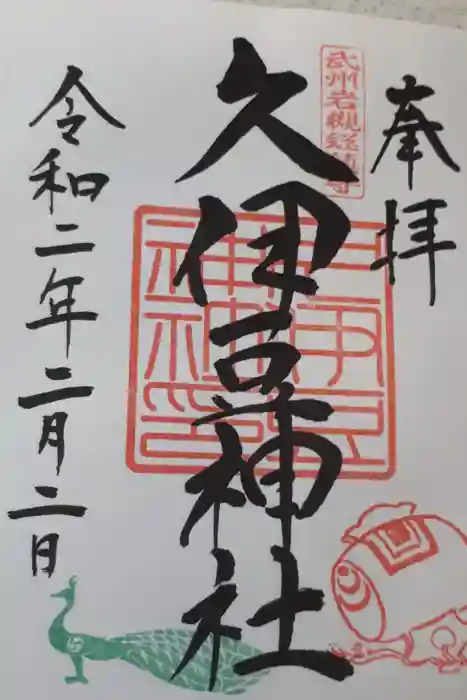 奉拝
武州岩槻総鎮守
久伊豆神社
令和二年二月二日